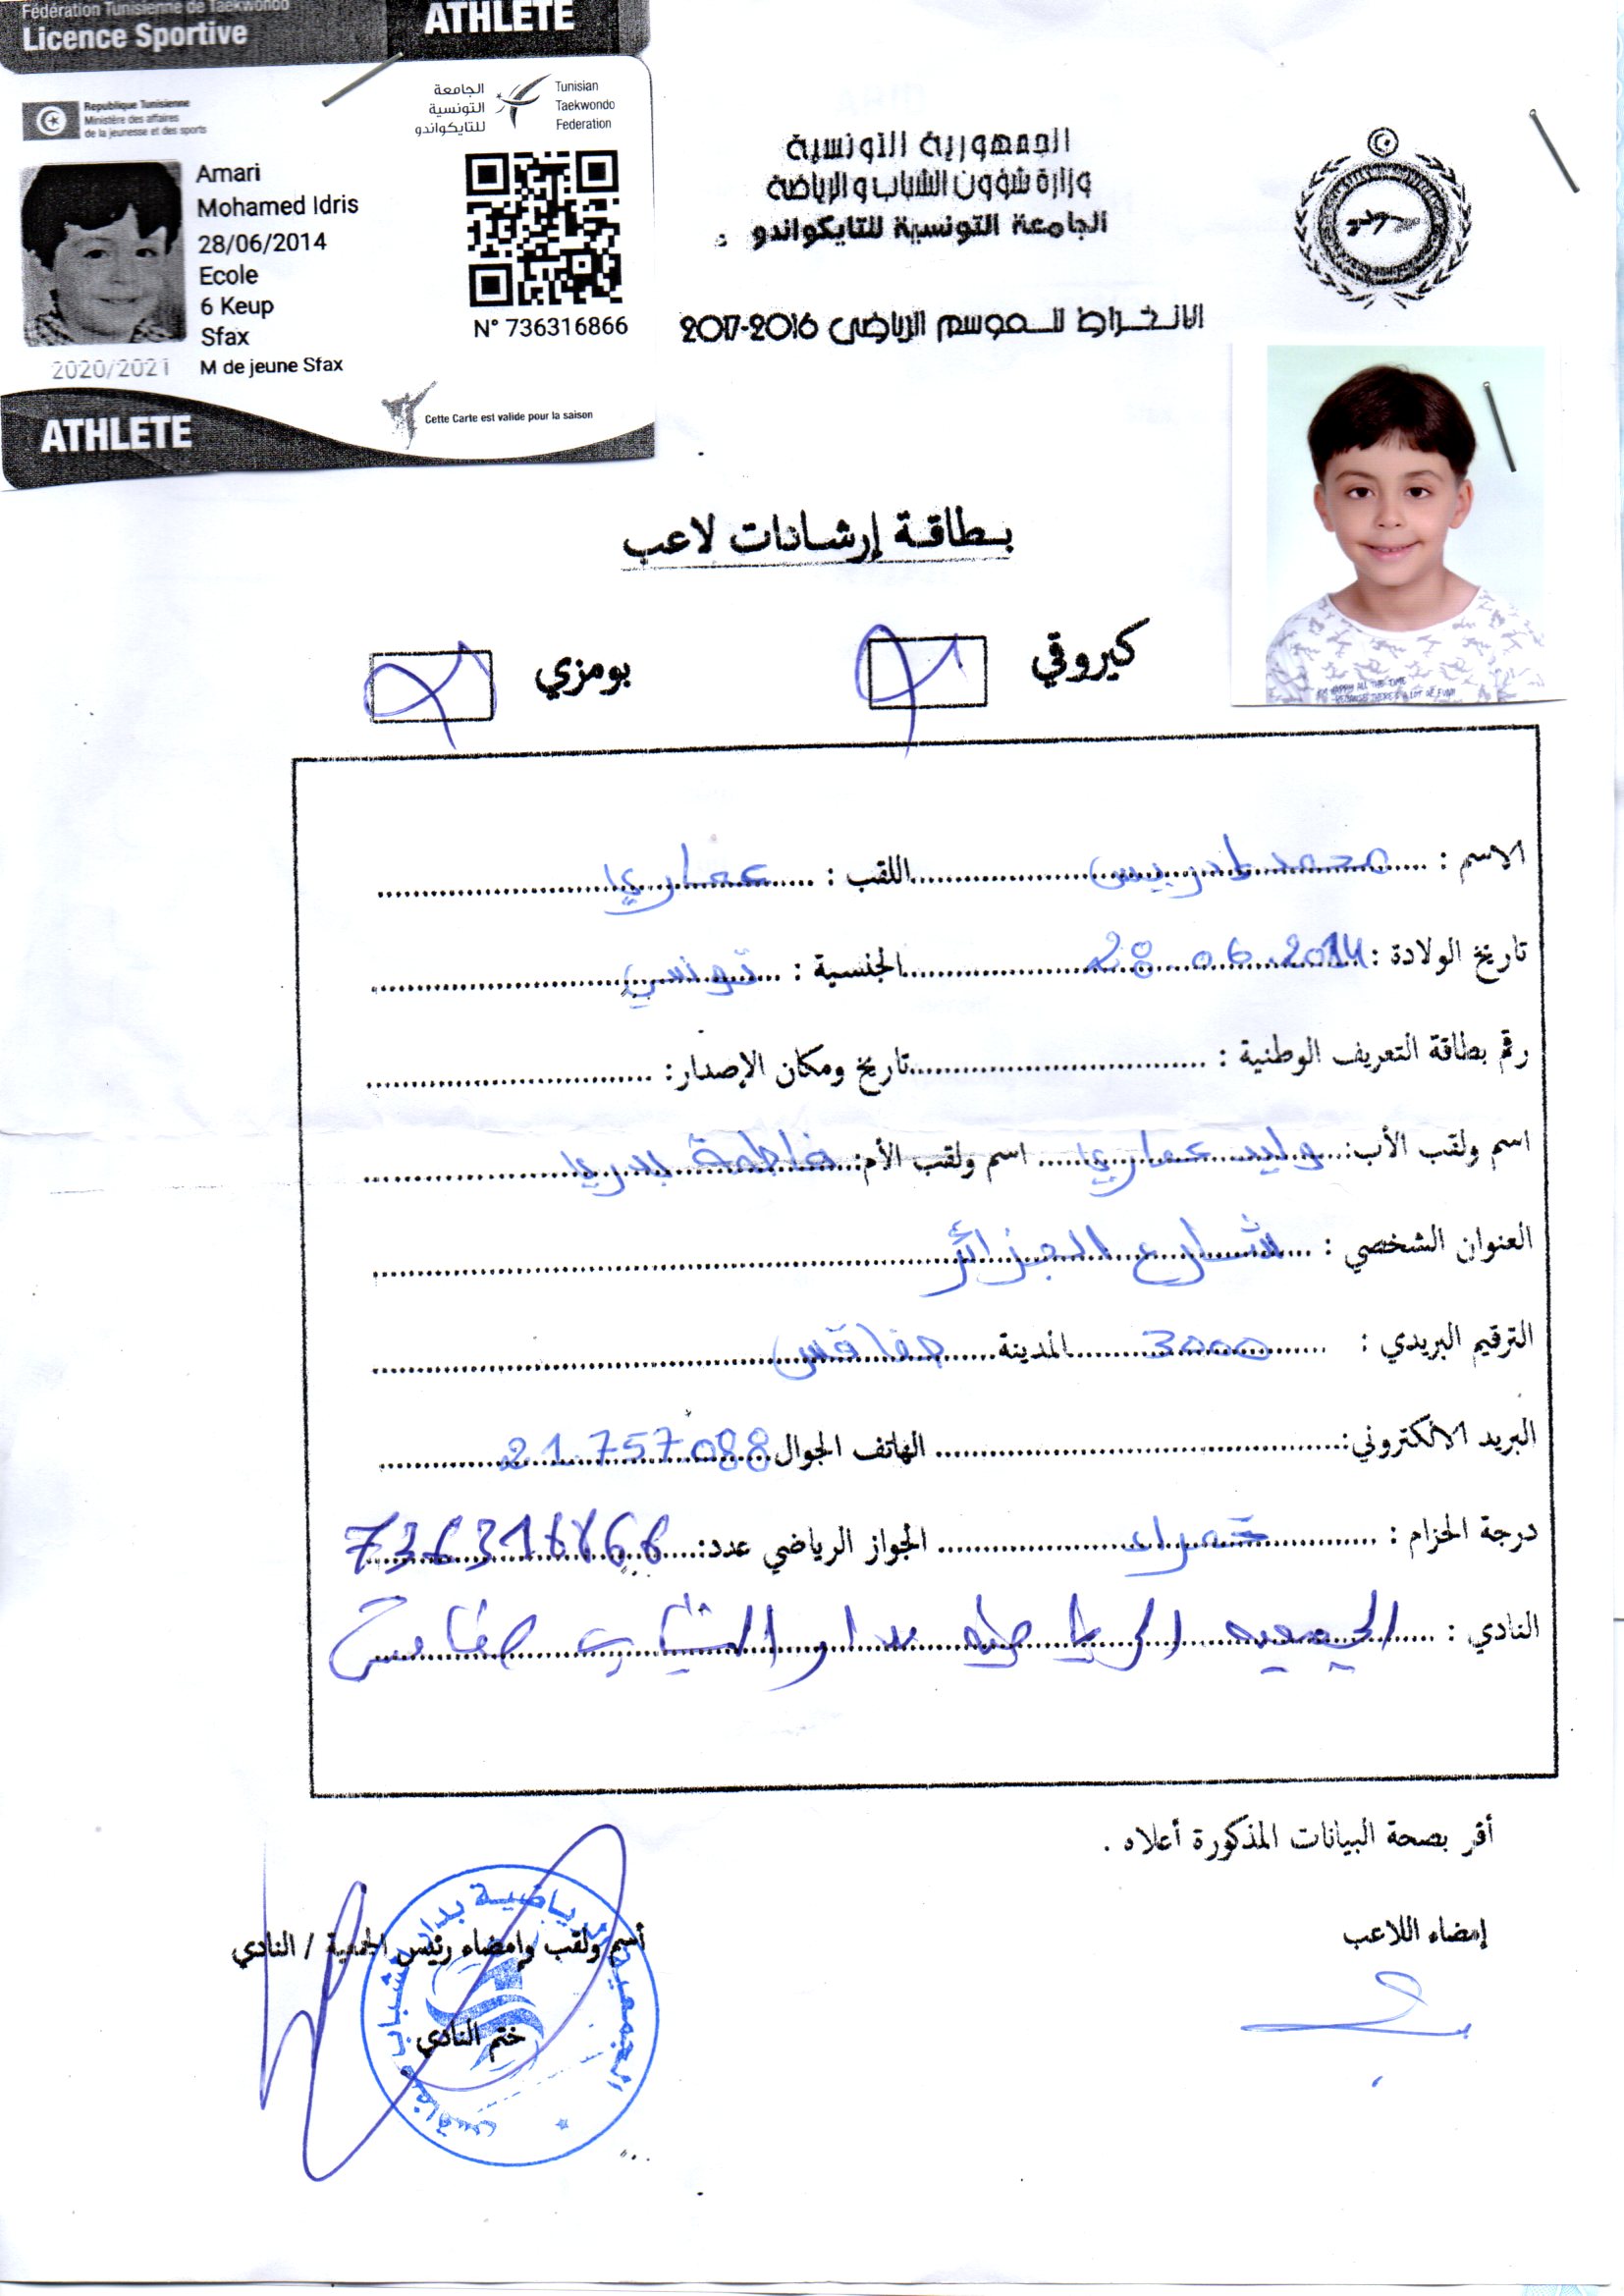 Fédération Tunisienne de Taekwondo
Licence Sportive
ATHLETE
Republique Tunisienne
Ministère des affaires
de la jeunesse et des sports
الجامعة
التونسية
للتايكواندو
Tunisian
Taekwondo
Federation
Amari
Mohamed Idris
28/06/2014
Ecole
6 Keup
Sfax
M de jeune Sfax
2020/2021
N° 736316866
Cette Carte est valide pour la saison
ATHLETE
الجمهورية التونسية
وزارة شؤون الشباب والرياضة
الجامعة التونسية للتايكواندو
الانخراط للموسم الرياضي 2016-2017
بطاقة إرشانات لاعب
كيروقي بومزي
الاسم : محمد ادريس اللقب : عماري
تاريخ الولادة : 28.06.2014 الجنسية : تونسي
رقم بطاقة التعريف الوطنية : تاريخ ومكان الإصدار:
اسم ولقب الأب: وليد عماري اسم ولقب الأم: فاطمة بدري
العنوان الشخصي : شارع الجزائر
الترقيم البريدي : 3000 المدينة صفاقس
البريد الالكتروني: الهاتف الجوال 21.757.088
درجة الحزام : حمراء الجواز الرياضي عدد: 736316866
النادي : الجمعية الرياضية بدار الشباب صفاقس
أقر بصحة البيانات المذكورة أعلاه .
إمضاء اللاعب
أسم ولقب وإمضاء رئيس الجمعية / النادي
ختم النادي
الجمعية الرياضية بدار الشباب صفاقس